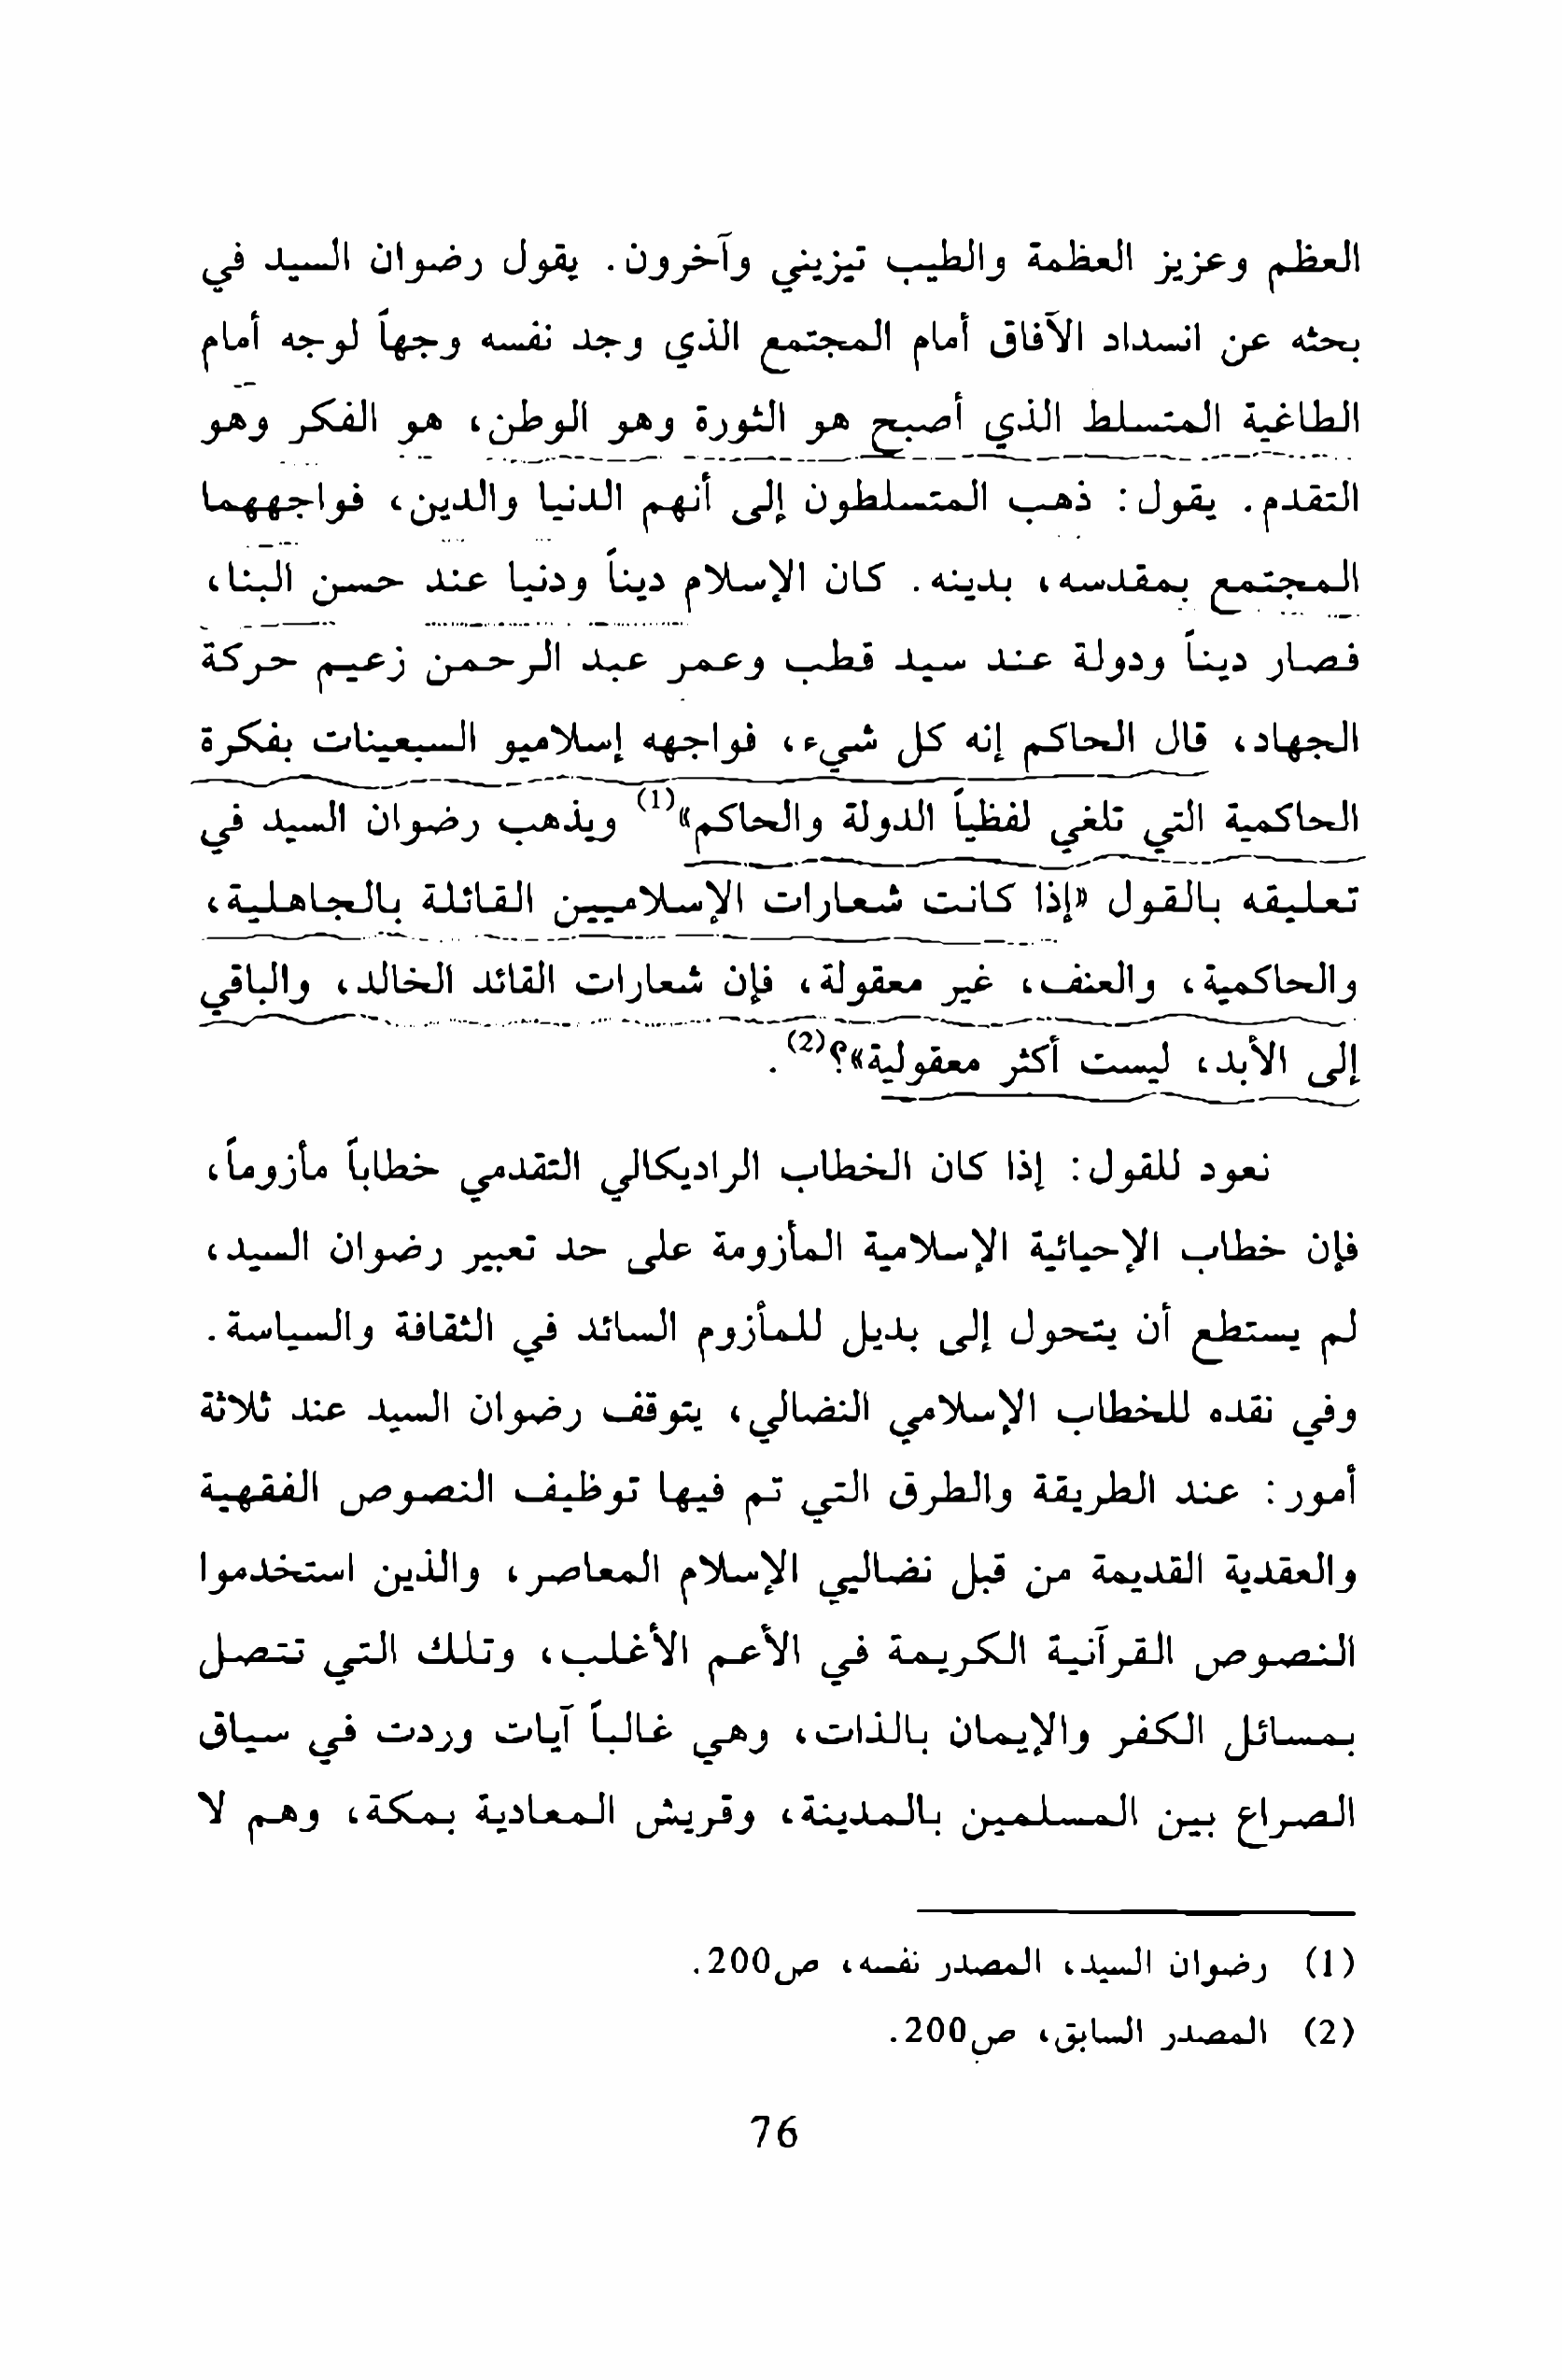 العظم وعزيز العظمة والطيب تيزيني وآخرون. يقول رضوان السيد في
بحثه عن انسداد الآفاق أمام المجتمع الذي وجد نفسه وجهاً لوجه أمام
الطاغية المتسلط الذي أصبح هو الثورة وهو الوطن، هو الفكر وهو
التقدم. يقول: ذهب المتسلطون إلى أنهم الدنيا والدين، فواجههما
المجتمع بمقدسه، بدينه. كان الإسلام ديناً ودنيا عند حسن البنا،
فصار ديناً ودولة عند سيد قطب وعمر عبد الرحمن زعيم حركة
الجهاد، قال الحاكم إنه كل شيء، فواجهه إسلاميو السبعينات بفكرة
الحاكمية التي تلغي لفظياً الدولة والحاكم»(1) ويذهب رضوان السيد في
تعليقه بالقول «إذا كانت شعارات الإسلاميين القائلة بالجاهلية،
والحاكمية، والعنف، غير معقولة، فإن شعارات القائد الخالد، والباقي
إلى الأبد، ليست أكثر معقولية»؟(2).
نعود للقول: إذا كان الخطاب الراديكالي التقدمي خطاباً مأزوماً،
فإن خطاب الإحيائية الإسلامية المأزومة على حد تعبير رضوان السيد،
لم يستطع أن يتحول إلى بديل للمأزوم السائد في الثقافة والسياسة.
وفي نقده للخطاب الإسلامي النضالي، يتوقف رضوان السيد عند ثلاثة
أمور: عند الطريقة والطرق التي تم فيها توظيف النصوص الفقهية
والعقدية القديمة من قبل نضاليي الإسلام المعاصر، والذين استخدموا
النصوص القرآنية الكريمة في الأعم الأغلب، وتلك التي تتصل
بمسائل الكفر والإيمان بالذات، وهي غالباً آيات وردت في سياق
الصراع بين المسلمين بالمدينة، وقريش المعادية بمكة، وهم لا
(1) رضوان السيد، المصدر نفسه، ص200.
(2) المصدر السابق، ص200.
76